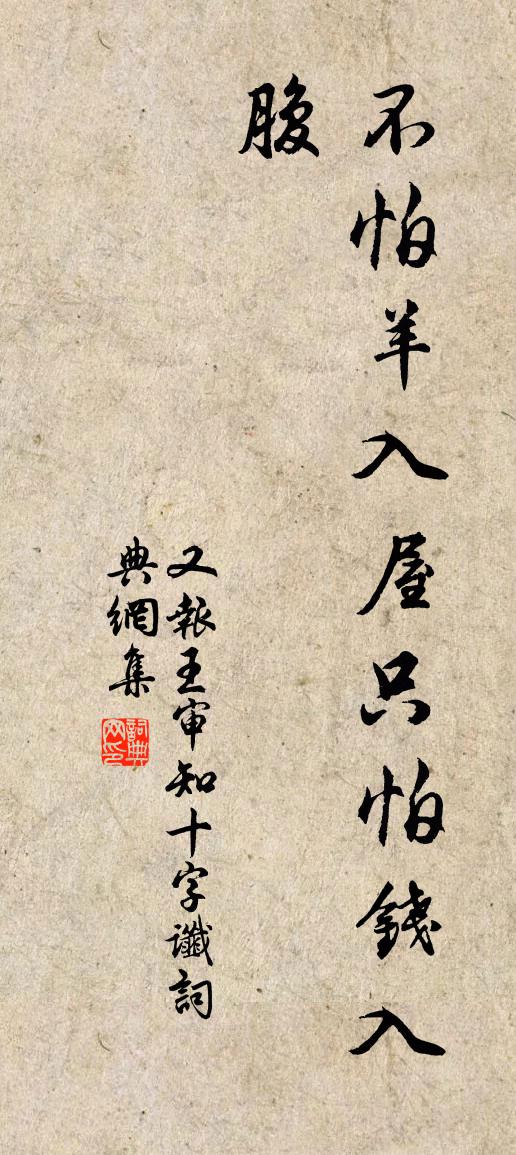 不怕羊入屋只怕錢入
腹
又報王审知十字讖詞
典網集
詞典
网印